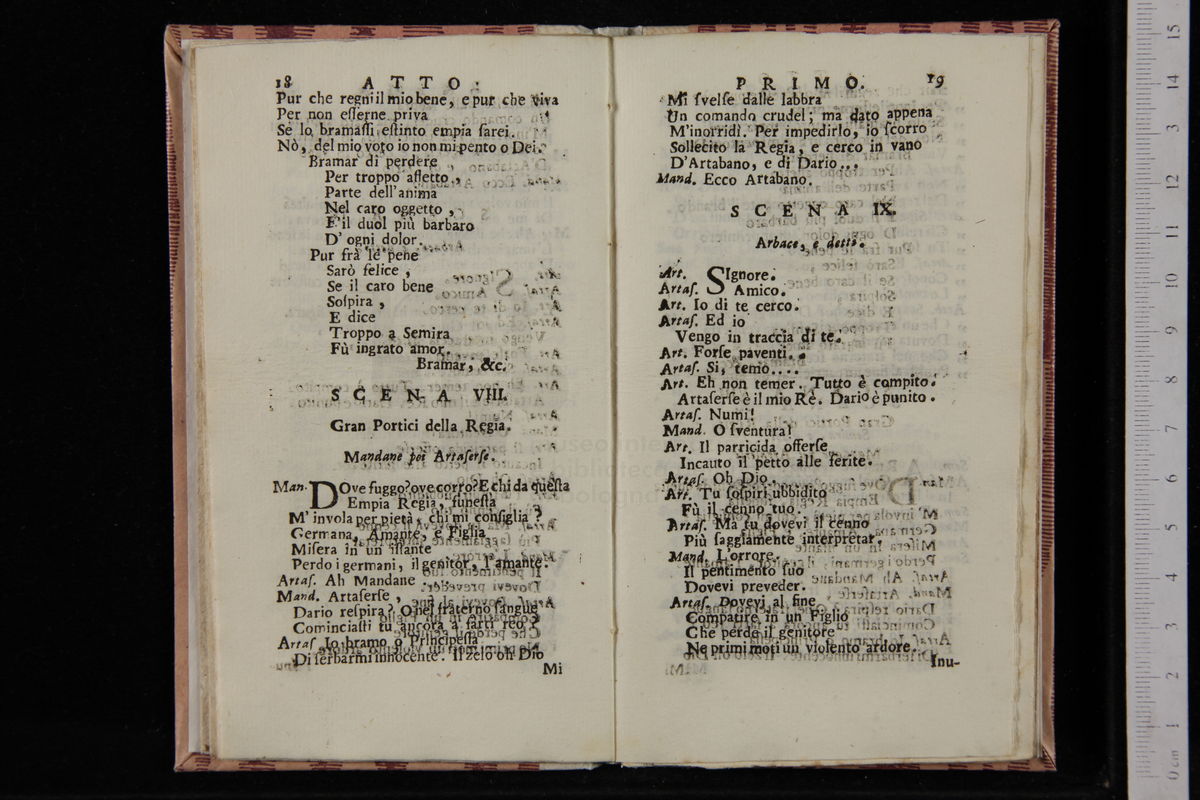 18 ATTO:
Pur che regni il mio bene, e pur che viva
Per non eſſerne priva
Se lo bramaſſi eſtinto empia ſarei.
Nò, del mio voto io non mi pento o Dei.
Bramar di perdere
Per troppo affetto,
Parte dell'anima
Nel caro oggetto,
E' il duol più barbaro
D' ogni dolor.
Pur frà le pene
Sarò felice,
Se il caro bene
Soſpira,
E dice
Troppo a Semira
Fù ingrato amor.
Bramar, &c.
SCENA VIII.
Gran Portici della Regia.
Mandane poi Artaſerſe.
Man. DOve fuggo? ove corro? E chi da queſta
Empia Regia, funeſta
M' invola per pietà, chi mi conſiglia?
Germana, Amante, e Figlia
Miſera in un' iſtante
Perdo i germani, il genitor, l'amante.
Artaſ. Ah Mandane.
Mand. Artaſerſe,
Dario reſpira? O nel fraterno ſangue
Cominciaſti tu ancora a farti reo?
Artaſ. Io bramo o Principeſſa
Di ſerbarmi innocente. Il zelo oh Dio
Mi
PRIMO. 19
Mi ſvelſe dalle labbra
Un comando crudel; ma dato appena
M'inorridì. Per impedirlo, io ſcorro
Sollecito la Regia, e cerco in vano
D'Artabano, e di Dario...
Mand. Ecco Artabano.
SCENA IX.
Arbace, e detti.
Art. SIgnore.
Artaſ. Amico.
Art. Io di te cerco.
Artaſ. Ed io
Vengo in traccia di te.
Art. Forſe paventi.
Artaſ. Si, temo....
Art. Eh non temer. Tutto è compito.
Artaſerſe è il mio Rè. Dario è punito.
Artaſ. Numi!
Mand. O ſventura!
Art. Il parricida offerſe
Incauto il petto alle ferite.
Artaſ. Oh Dio.
Art. Tu ſoſpiri ubbidito
Fù il cenno tuo.
Artaſ. Ma tu dovevi il cenno
Più ſaggiamente interpretar.
Mand. L'orrore.
Il pentimento ſuo
Dovevi preveder.
Artaſ. Dovevi al fine
Compatire in un Figlio
Che perde il genitore
Ne primi moti un violento ardore.
Inu-